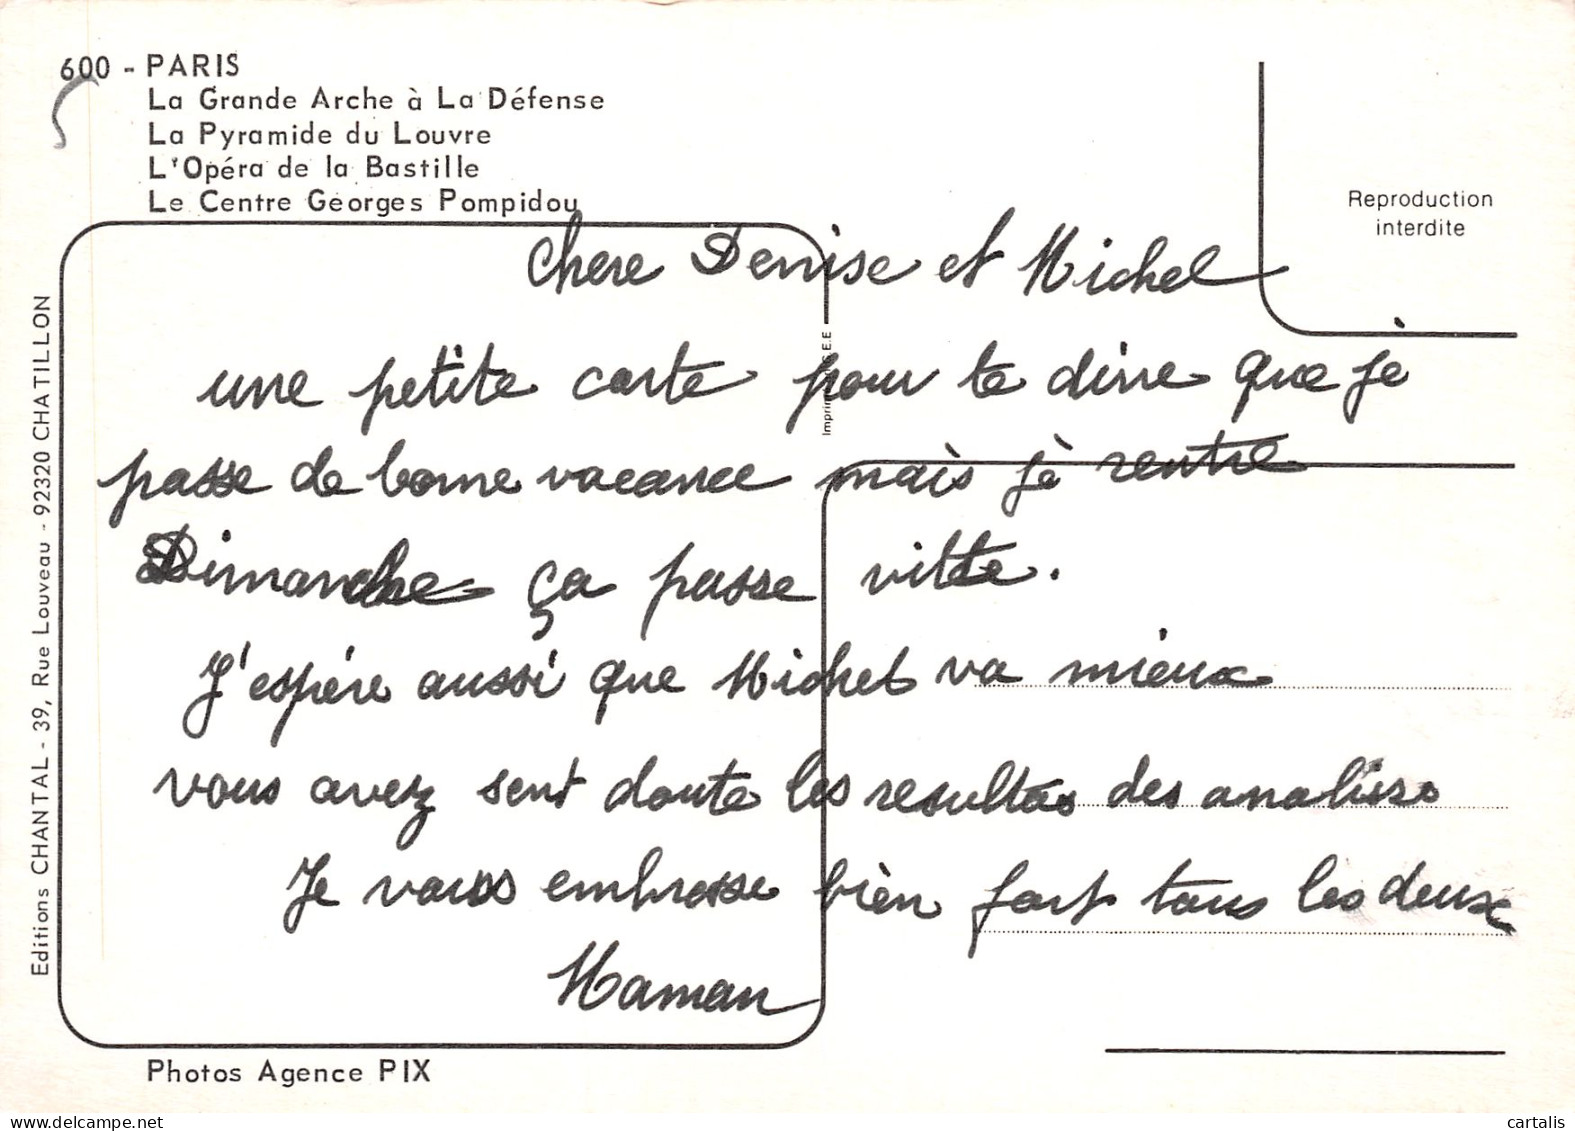 600 - PARIS
La Grande Arche à La Défense
La Pyramide du Louvre
L'Opéra de la Bastille
Le Centre Georges Pompidou
Reproduction
interdite
Chere Denise et Michel
une petite carte pour te dire que je
passe de bonne vacance mais je rentre
Dimanche ça passe vitte.
J'espére aussi que Michel va mieux
vous avez sent doute les resultas des analises
Je vous embrasse bien fort tous les deux
Maman
Editions CHANTAL - 39, Rue Louveau - 92320 CHATILLON
Photos Agence PIX
delcampe.net
cartalis